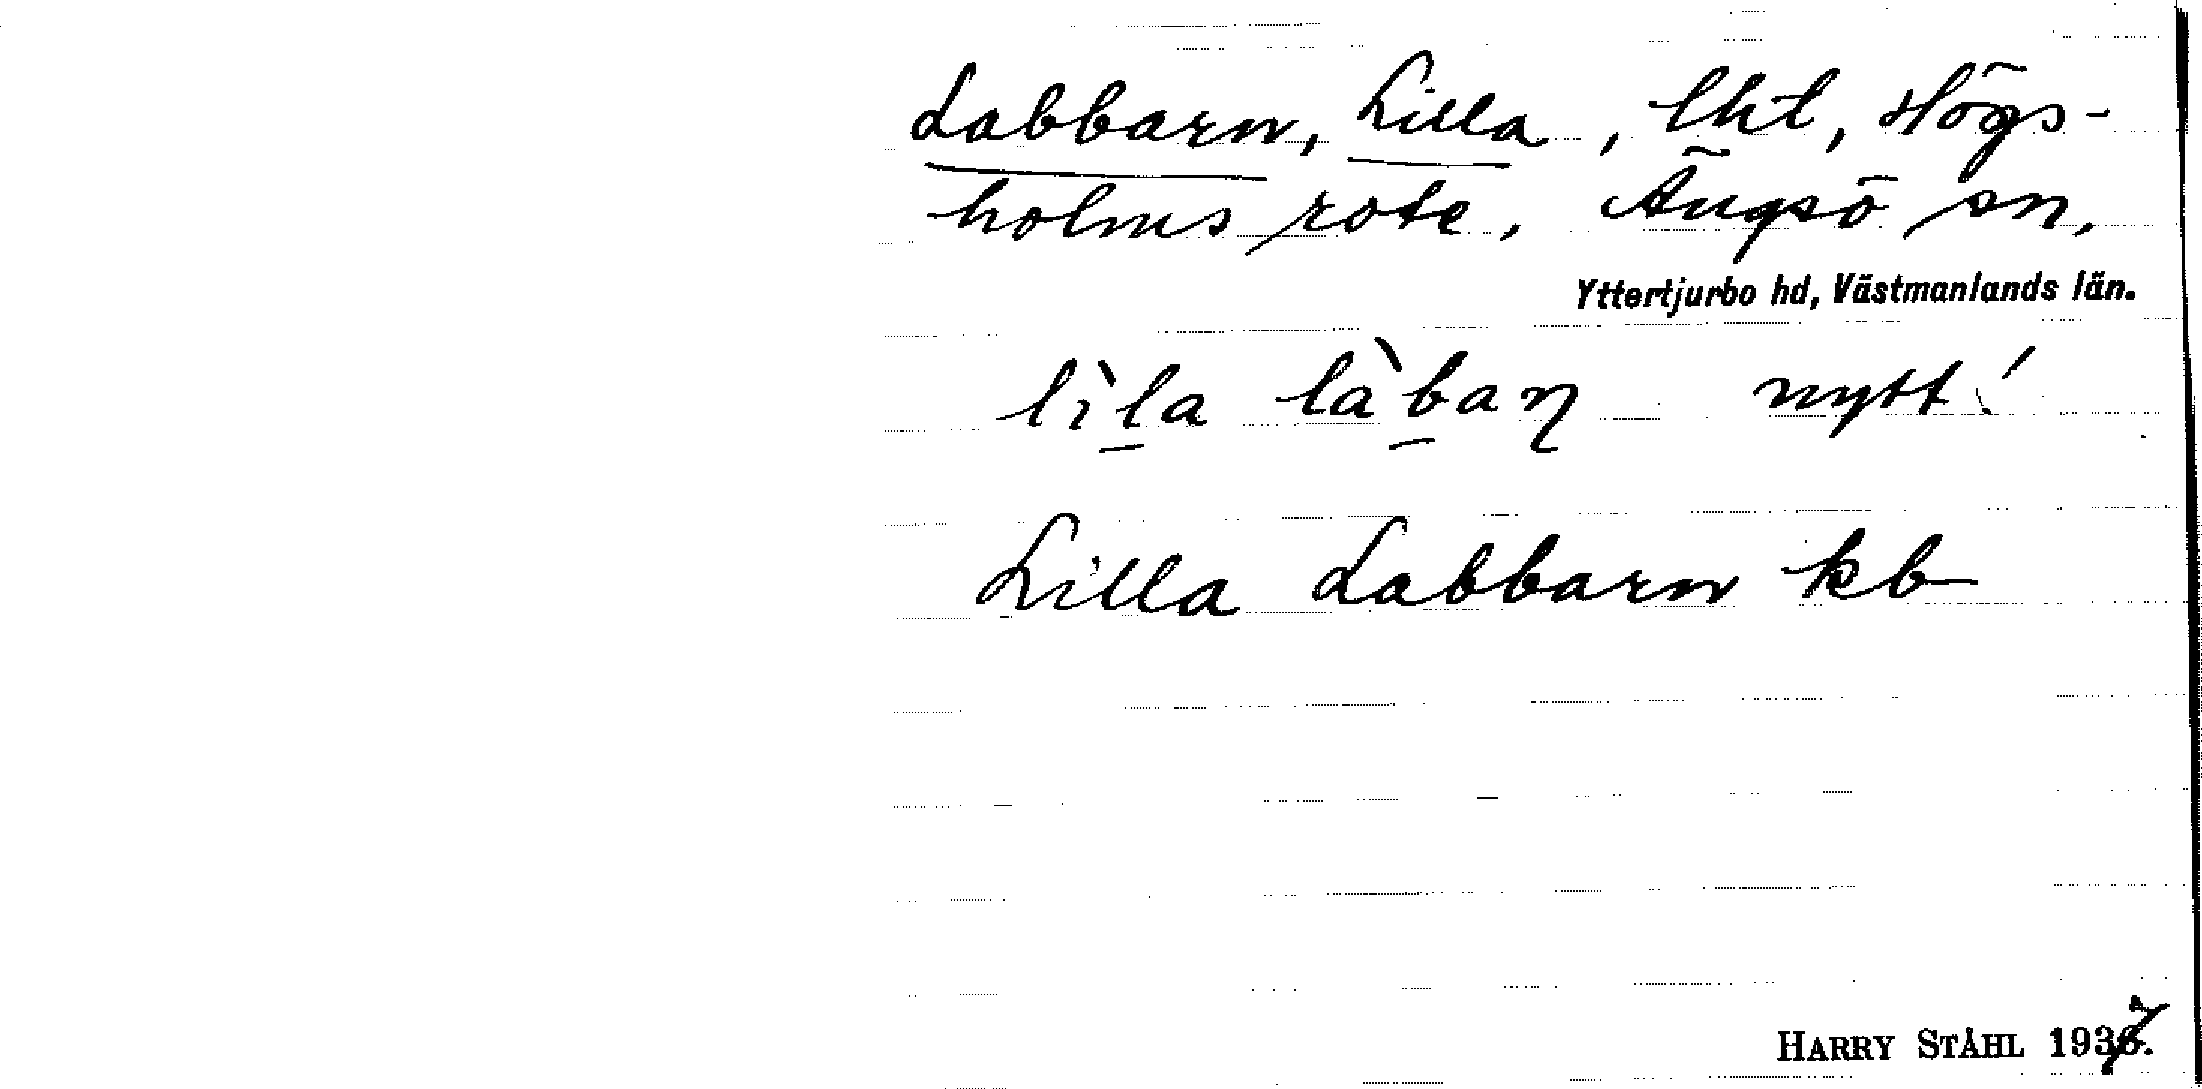 Labbarn, Lilla, lht, Högs-
holms rote, Ängsö sn,
Yttertjurbo hd, Västmanlands län.
lìl̠a làb̠aɳ nytt!
Lilla Labbarn kb
HARRY STÅHL 1937.